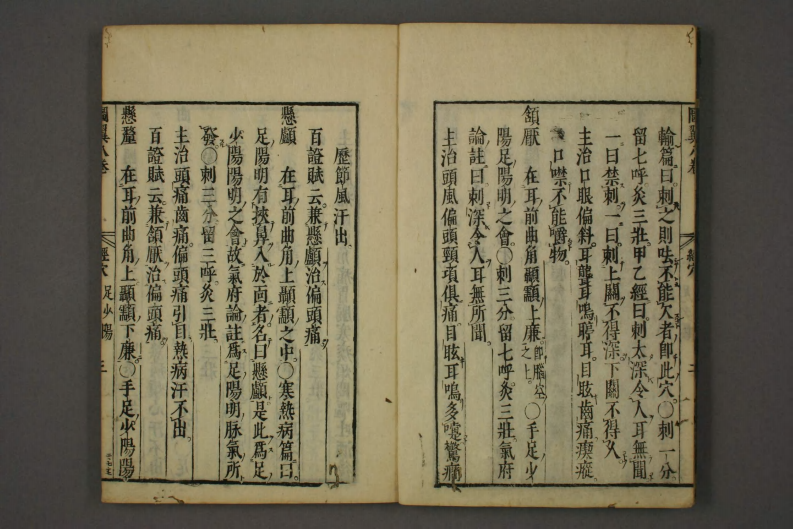 輸篇曰刺之則呿不能欠者卽此穴○刺一分
留七呼灸三壯甲乙經曰刺太深令人耳無聞
一曰禁刺一曰刺上關不得深下關不得久
主治口眼偏斜耳聾耳鳴聤耳目眩齒痛瘈瘲
口噤不能嚼物
頷厭 在耳前曲角顳顬上廉卽腦空之上○手足少
陽足陽明之會○刺三分留七呼灸三壯氣府
論註曰刺深令人耳無所聞
主治頭風偏頭頸項俱痛目眩耳鳴多嚏驚癎
歷節風汗出
百證賦云兼懸顱治偏頭痛
懸顱 在耳前曲角上顳顬之中○寒熱病篇曰
足陽明有挾鼻入於面者名曰懸顱是此爲足
少陽陽明之會故氣府論註爲足陽明脉氣所
發○刺三分留三呼灸三壯
主治頭痛齒痛偏頭痛引目熱病汗不出
百證賦云兼頷厭治偏頭痛
懸釐 在耳前曲角上顳顬下廉○手足少陽陽
圖翼八卷 經穴 足少陽 三